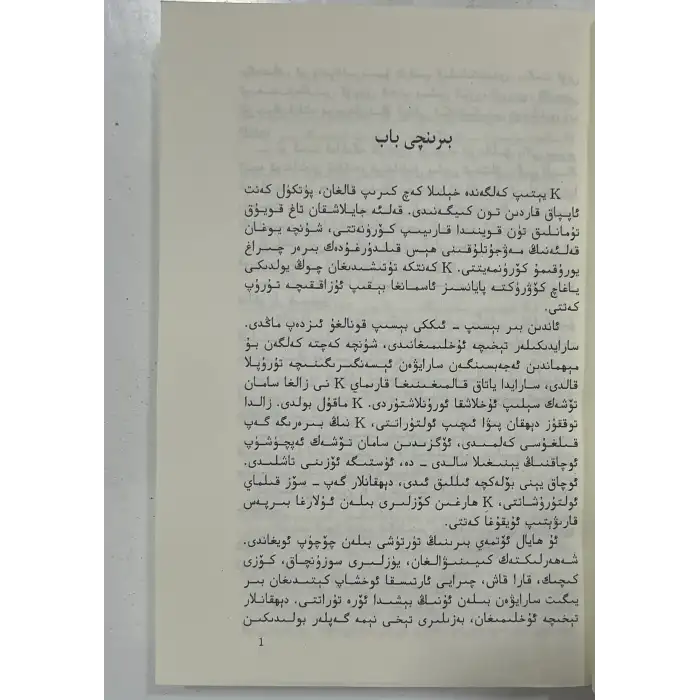 بىرىنچى باب
K يېتىپ كەلگەندە خېلىلا كەچ كىرىپ قالغان، پۈتكۈل كەنت
ئاپپاق قاردىن تون كىيگەنىدى. قەلئە جايلاشقان تاغ قويۇق
تۇمانلىق تۈن قوينىدا قارىيىپ كۆرۈنەتتى، شۇنچە يوغان
قەلئەنىڭ مەۋجۇتلۇقىنى ھېس قىلدۇرغۇدەك بىرەر چىراغ
يورۇقىمۇ كۆرۈنمەيتتى. K كەنتكە تۇتىشىدىغان چوڭ يولدىكى
ياغاچ كۆۋرۈكتە پايانسىز ئاسمانغا بېقىپ ئۇزاققىچە تۇرۇپ
كەتتى.
ئاندىن بىر بېسىپ – ئىككى بېسىپ قونالغۇ ئىزدەپ ماڭدى.
سارايدىكىلەر تېخىچە ئۇخلىمىغانىدى، شۇنچە كەچتە كەلگەن بۇ
مېھماندىن ئەجەبسىنگەن سارايۋەن ئېسەنگىرىگىنىچە تۇرۇپلا
قالدى، سارايدا ياتاق قالمىغىنىغا قارىماي K نى زالغا سامان
تۆشەك سېلىپ ئۇخلاشقا ئورۇنلاشتۇردى. K ماقۇل بولدى. زالدا
توققۇز دېھقان پىۋا ئىچىپ ئولتۇراتتى، K نىڭ بىرەرىگە گەپ
قىلغۇسى كەلمىدى، ئۆگزىدىن سامان تۆشەك ئەپچۈشۈپ
ئوچاقنىڭ يېنىغىلا سالدى – دە، ئۈستىگە ئۆزىنى تاشلىدى.
ئوچاق يېنى بۆلەكچە ئىللىق ئىدى، دېھقانلار گەپ – سۆز قىلماي
ئولتۇرۇشاتتى، K ھارغىن كۆزلىرى بىلەن ئۇلارغا بىرپەس
قارىۋېتىپ ئۇيقۇغا كەتتى.
ئۇ ھايال ئۆتمەي بىرىنىڭ تۈرتۈشى بىلەن چۆچۈپ ئويغاندى.
شەھەرلىكتەك كىيىنىۋالغان، يۈزلىرى سوزۇنچاق، كۆزى
كىچىك، قارا قاش، چىرايى ئارتىسقا ئوخشاپ كېتىدىغان بىر
يىگىت سارايۋەن بىلەن ئۇنىڭ بېشىدا ئۆرە تۇراتتى. دېھقانلار
تېخىچە ئۇخلىمىغان، بەزىلىرى تېخى نېمە گەپلەر بولىدىكىن
1